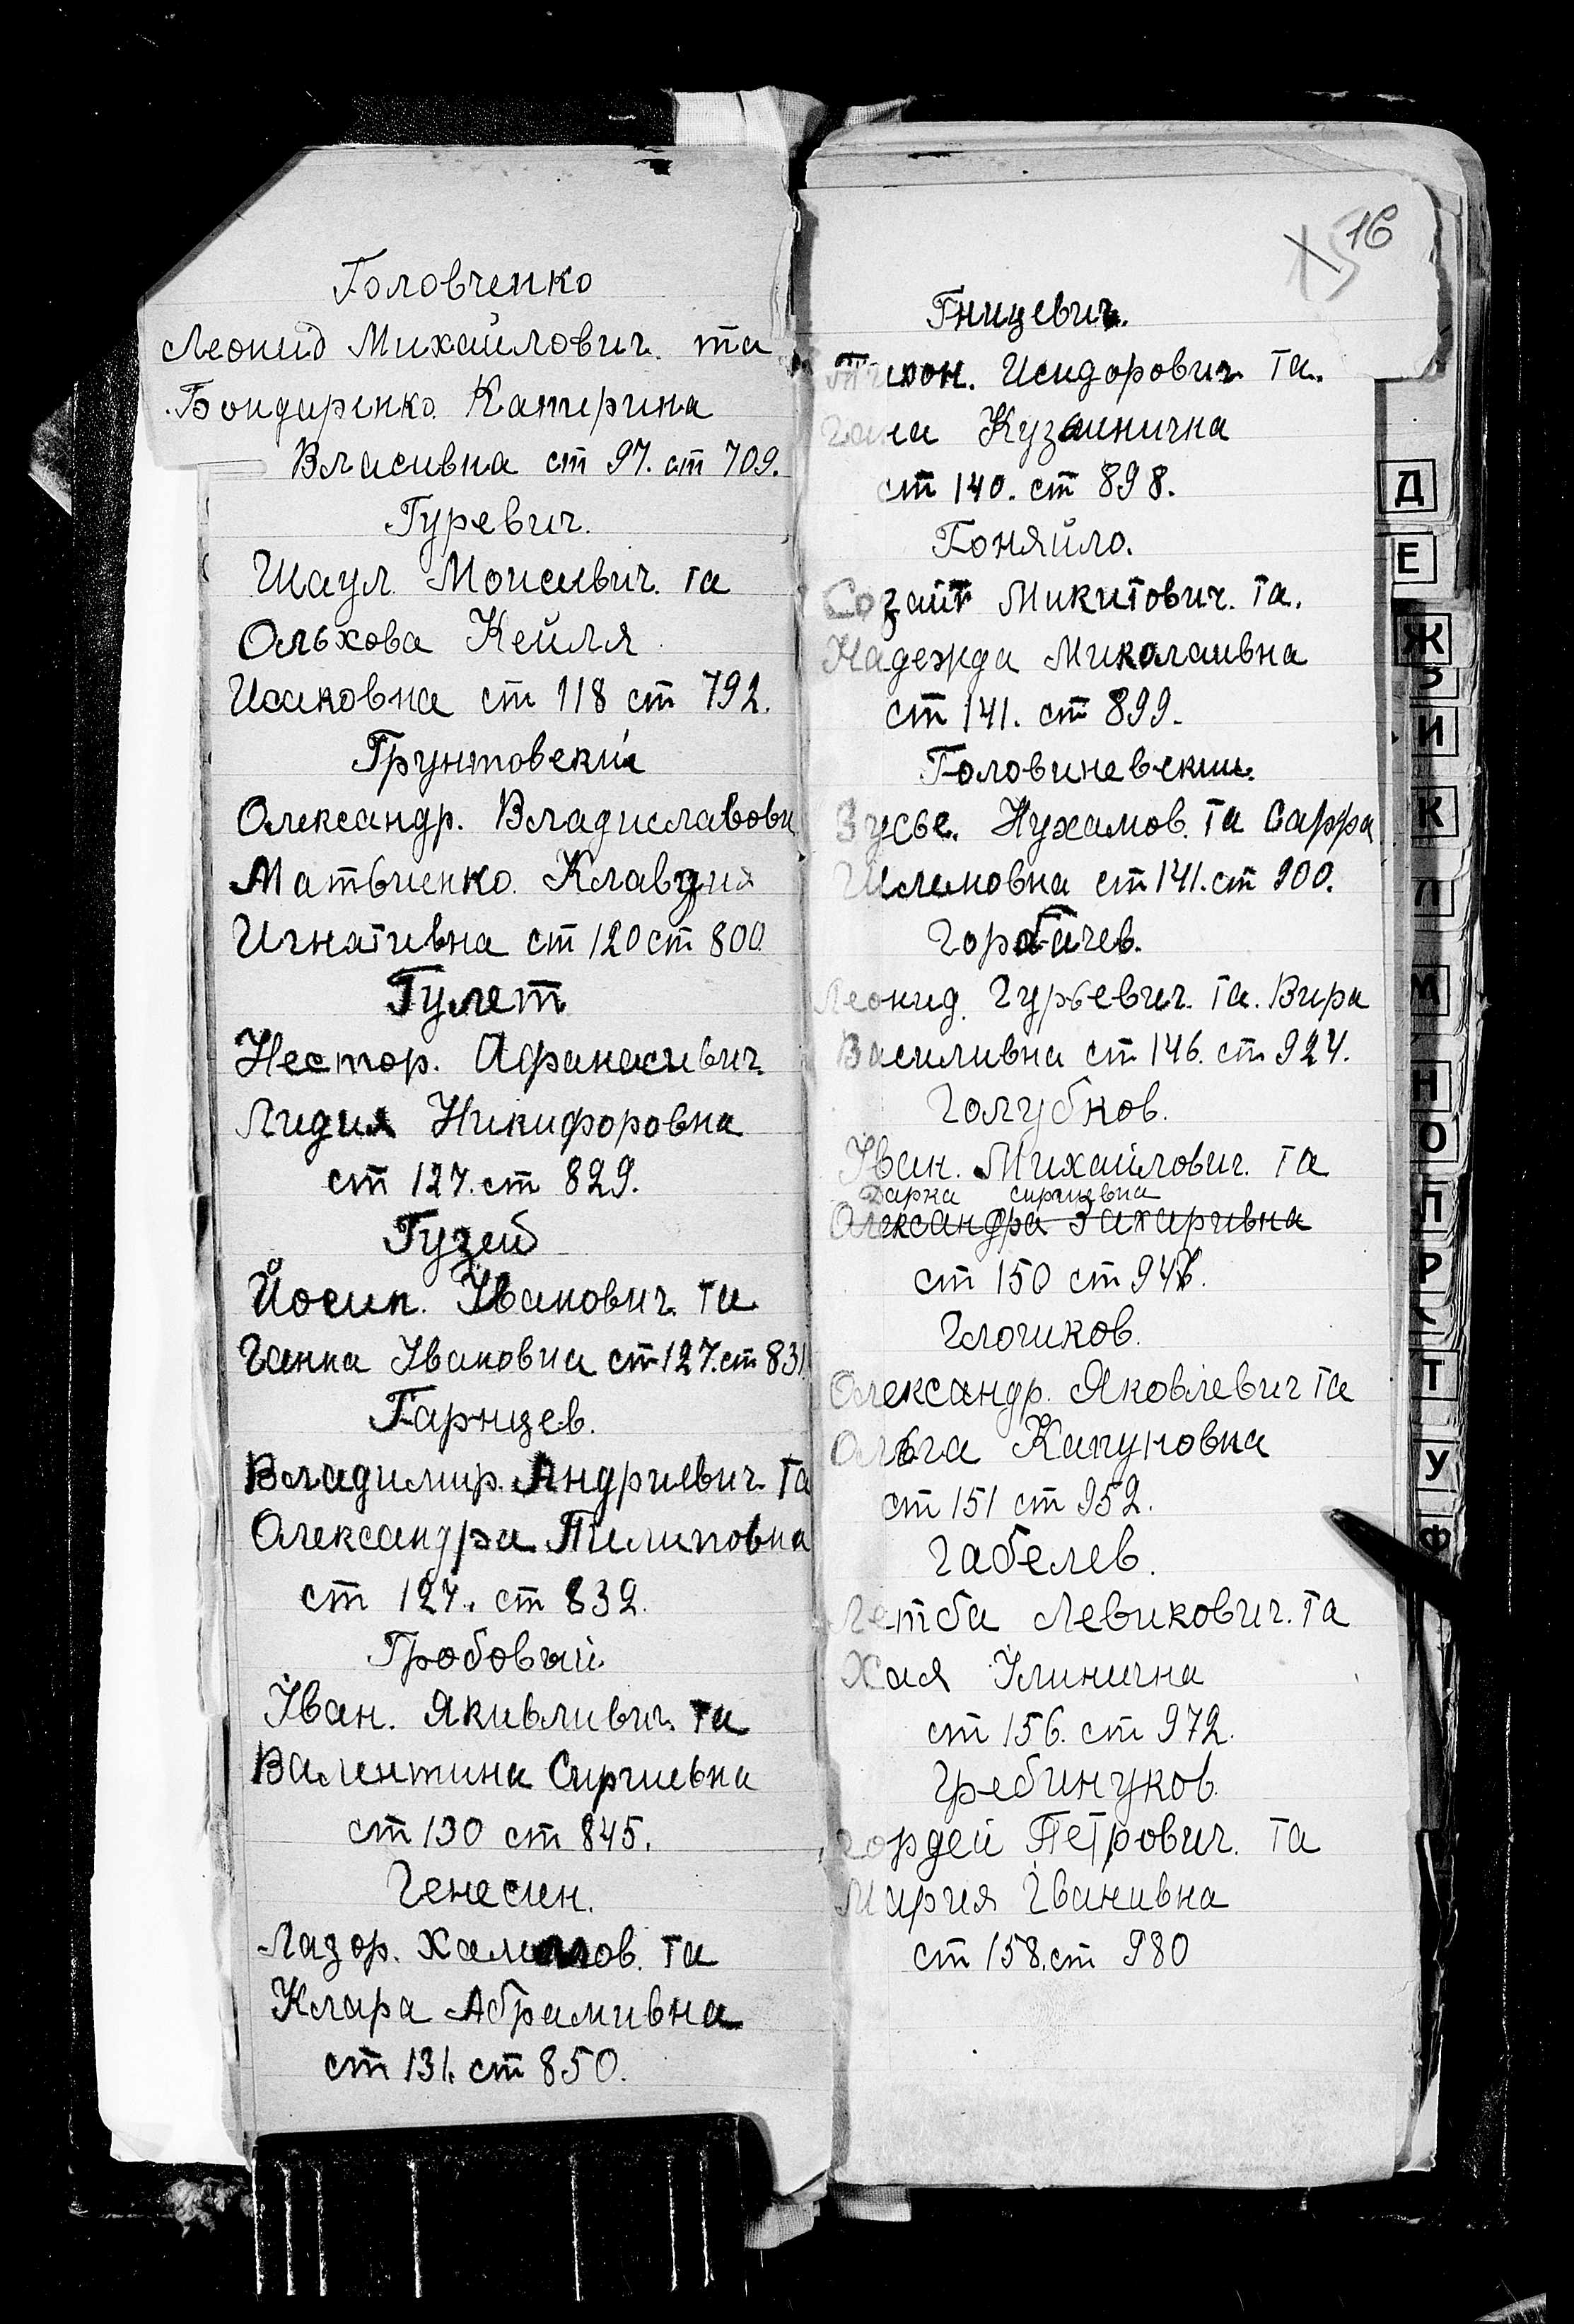 Головченко
Леонид Михайлович. та
Бондаренко Катерина
Власивна ст 97. ст 709.
Гуревич.
Шаул Моисивич. та
Ольхова Кейля
Исаковна ст 118 ст 792.
Грунтовский
Олександр. Владиславови
Матвиенко. Клавдия
Игнативна ст 120 ст 800
Гулет
Нестор. Афанасивич.
Лидия Никифоровна
ст 127. ст 829.
Гузей
Йосип. Іванович та
Ганна Івановна ст 127. ст 831
Гарнцев.
Владимир. Андриевич. та
Олександра Пилиповна
ст 127. ст 832.
Гробовый
Іван. Якивливич. та
Валентина Сиргиевна
ст 130 ст 845.
Генесин.
Лазор. та
Клара Абрамивна
ст 131. ст 850.
16
15
Гницевич.
Тихон. Исидорович та.
Кузминична
ст 140. ст 898.
Гоняйло.
Созонт Микитович. та.
Надежда Миколаивна
ст 141. ст 899.
Головиневский.
Зусье. Нухамов. та Сарра
Шлемовна ст 141. ст 900.
Горбачев.
Леонид. Гурьевич. та. Вира
Василивна ст 146. ст 924.
Голубков.
Іван. Михайлович. та
Дарка сиргиевна
Олександра Захаривна
ст 150 ст 946.
Глочиков.
Олександр. Яковлевич та
Ольга Капуновна
ст 151 ст 952.
Габелев.
Левикович. та
Хая Илинична
ст 156. ст 972.
Гребинуков.
Гордей Петрович. та
Мария Іванивна
ст 158. ст 980
Д
Е
Ж
З
И
К
Л
М
Н
О
П
Р
С
Т
У
Ф